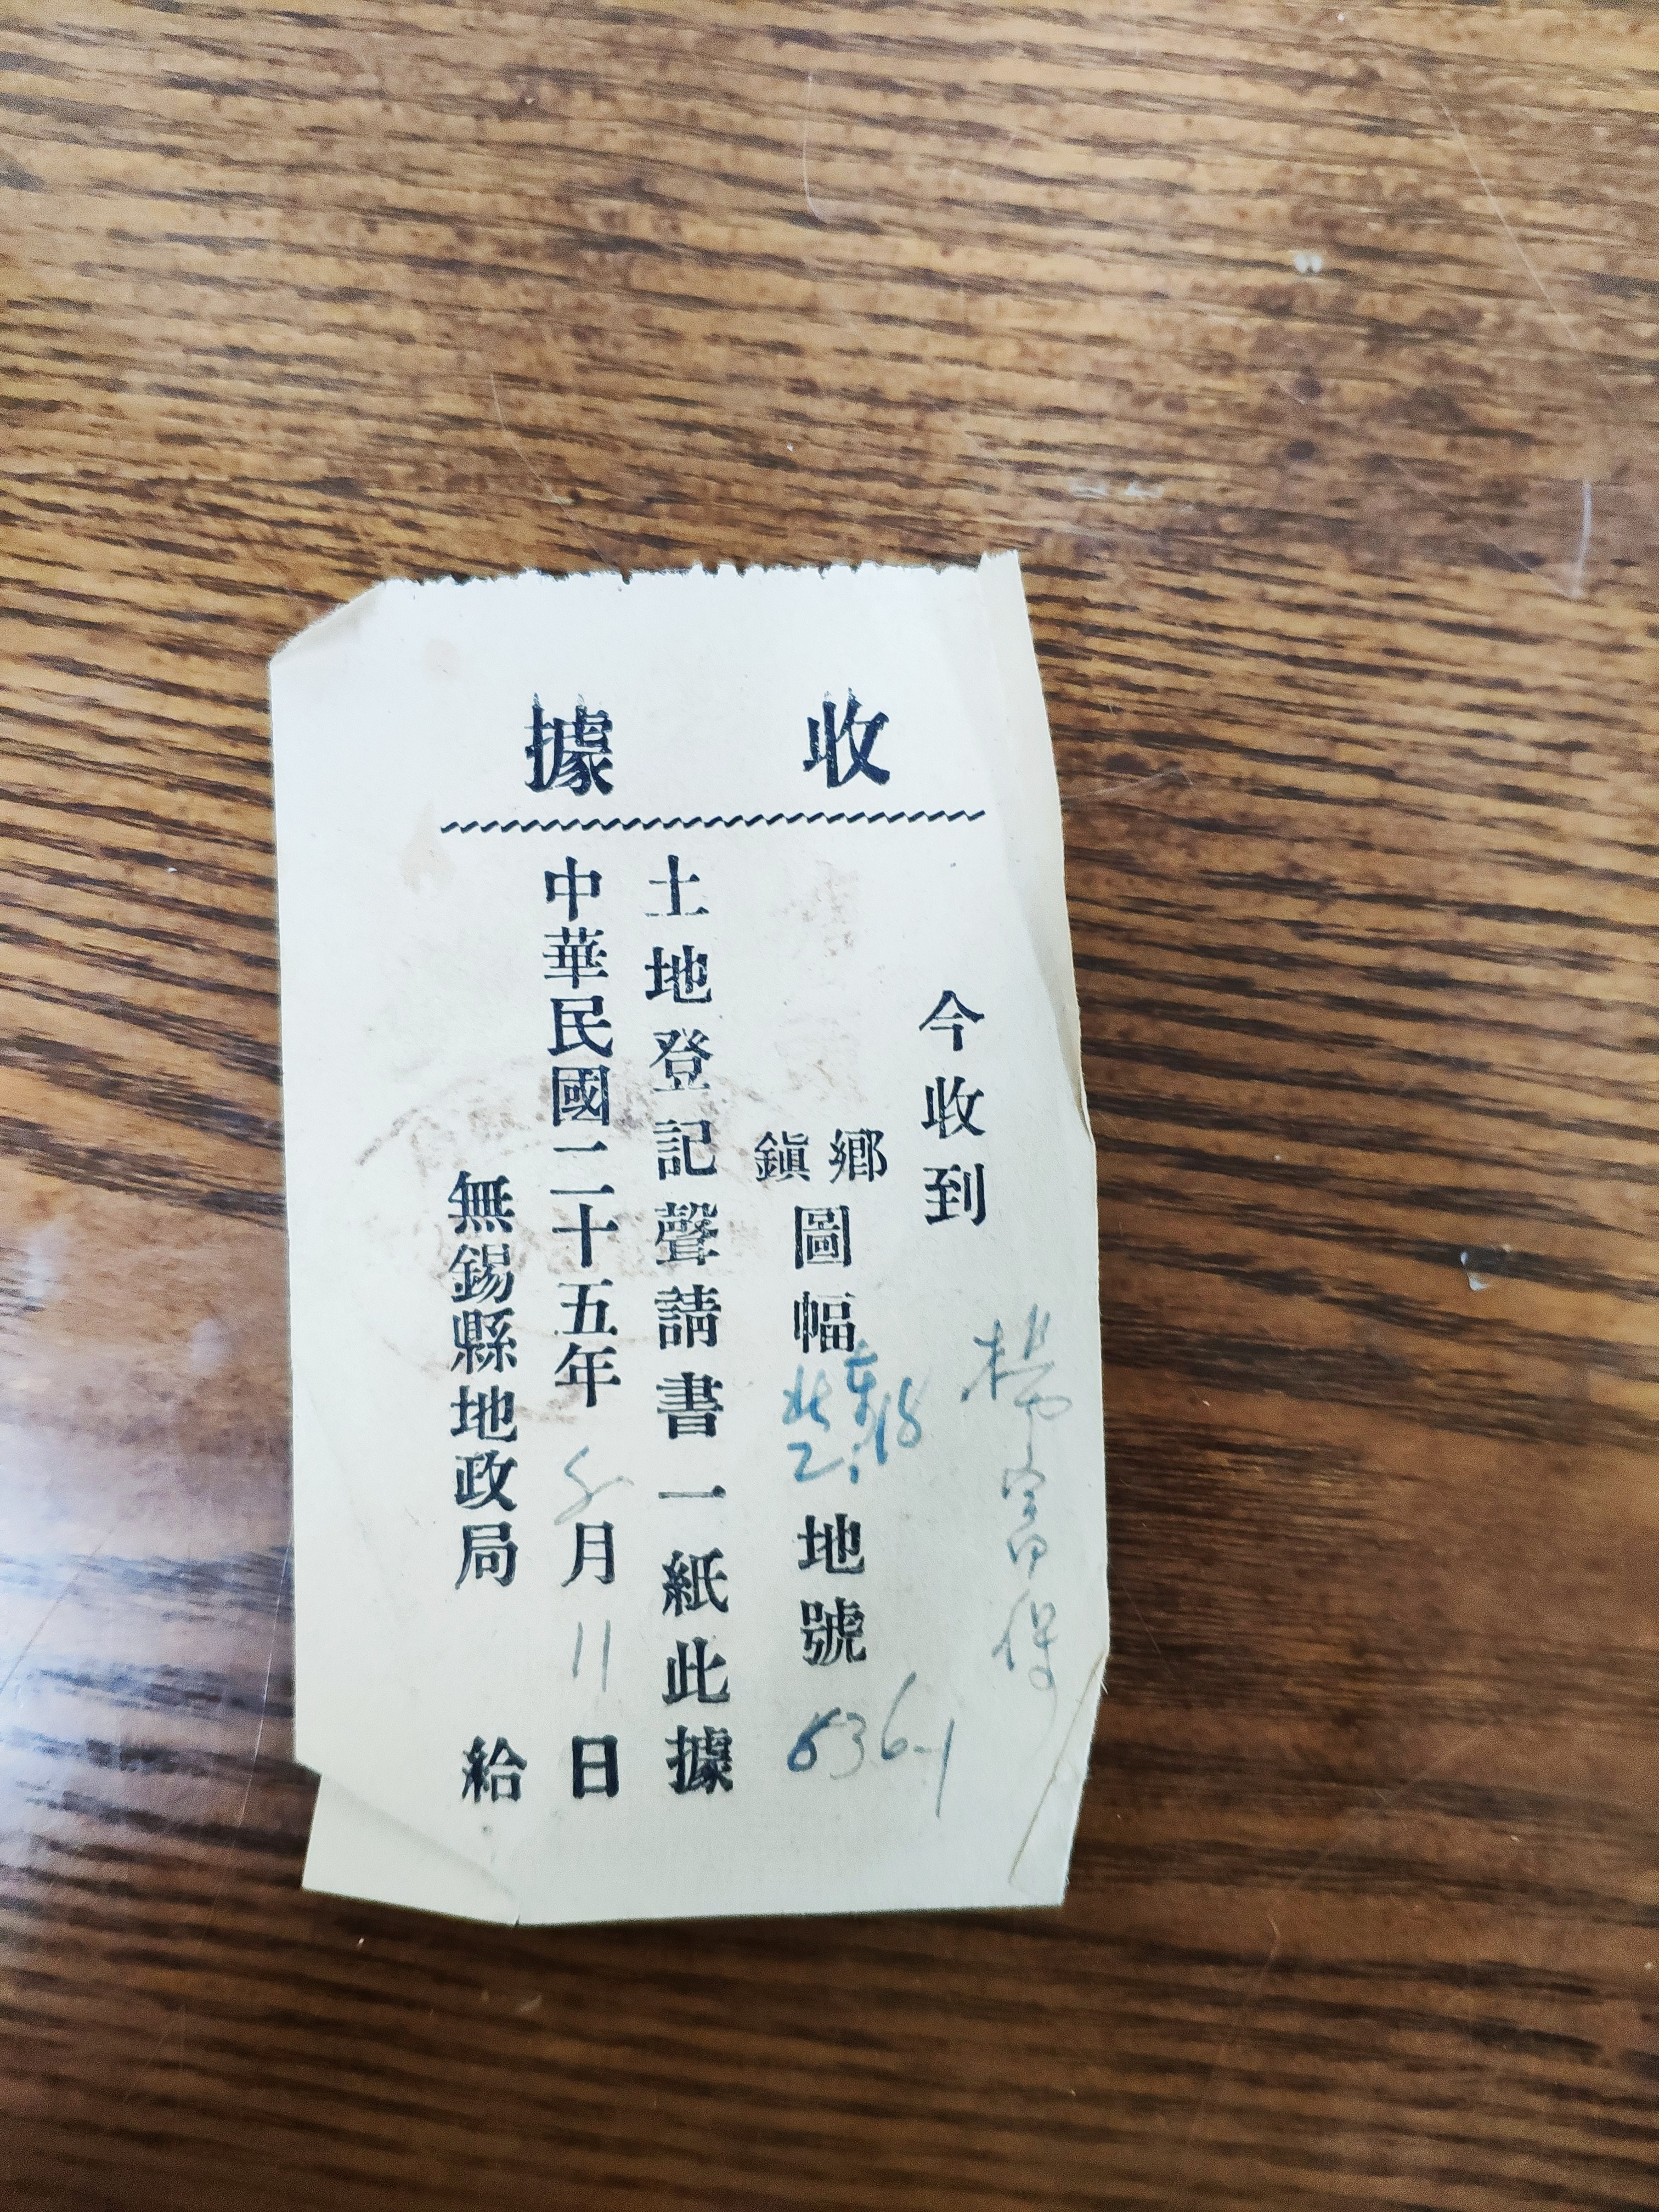 收據
今收到 楊富保
鄉鎮圖幅 東18 北2 地號 536-1
土地登記聲請書一紙此據
中華民國二十五年 月 11 日
無錫縣地政局 給